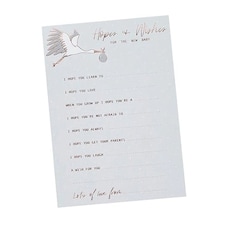 Hopes & Wishes
FOR THE NEW BABY
I HOPE YOU LEARN TO
I HOPE YOU LOVE
WHEN YOU GROW UP I HOPE YOU BE A
I HOPE YOU'RE NOT AFRAID TO
I HOPE YOU ALWAYS
I HOPE YOU GET YOUR PARENTS
I HOPE YOU LAUGH
A WISH FOR YOU
Lots of love from